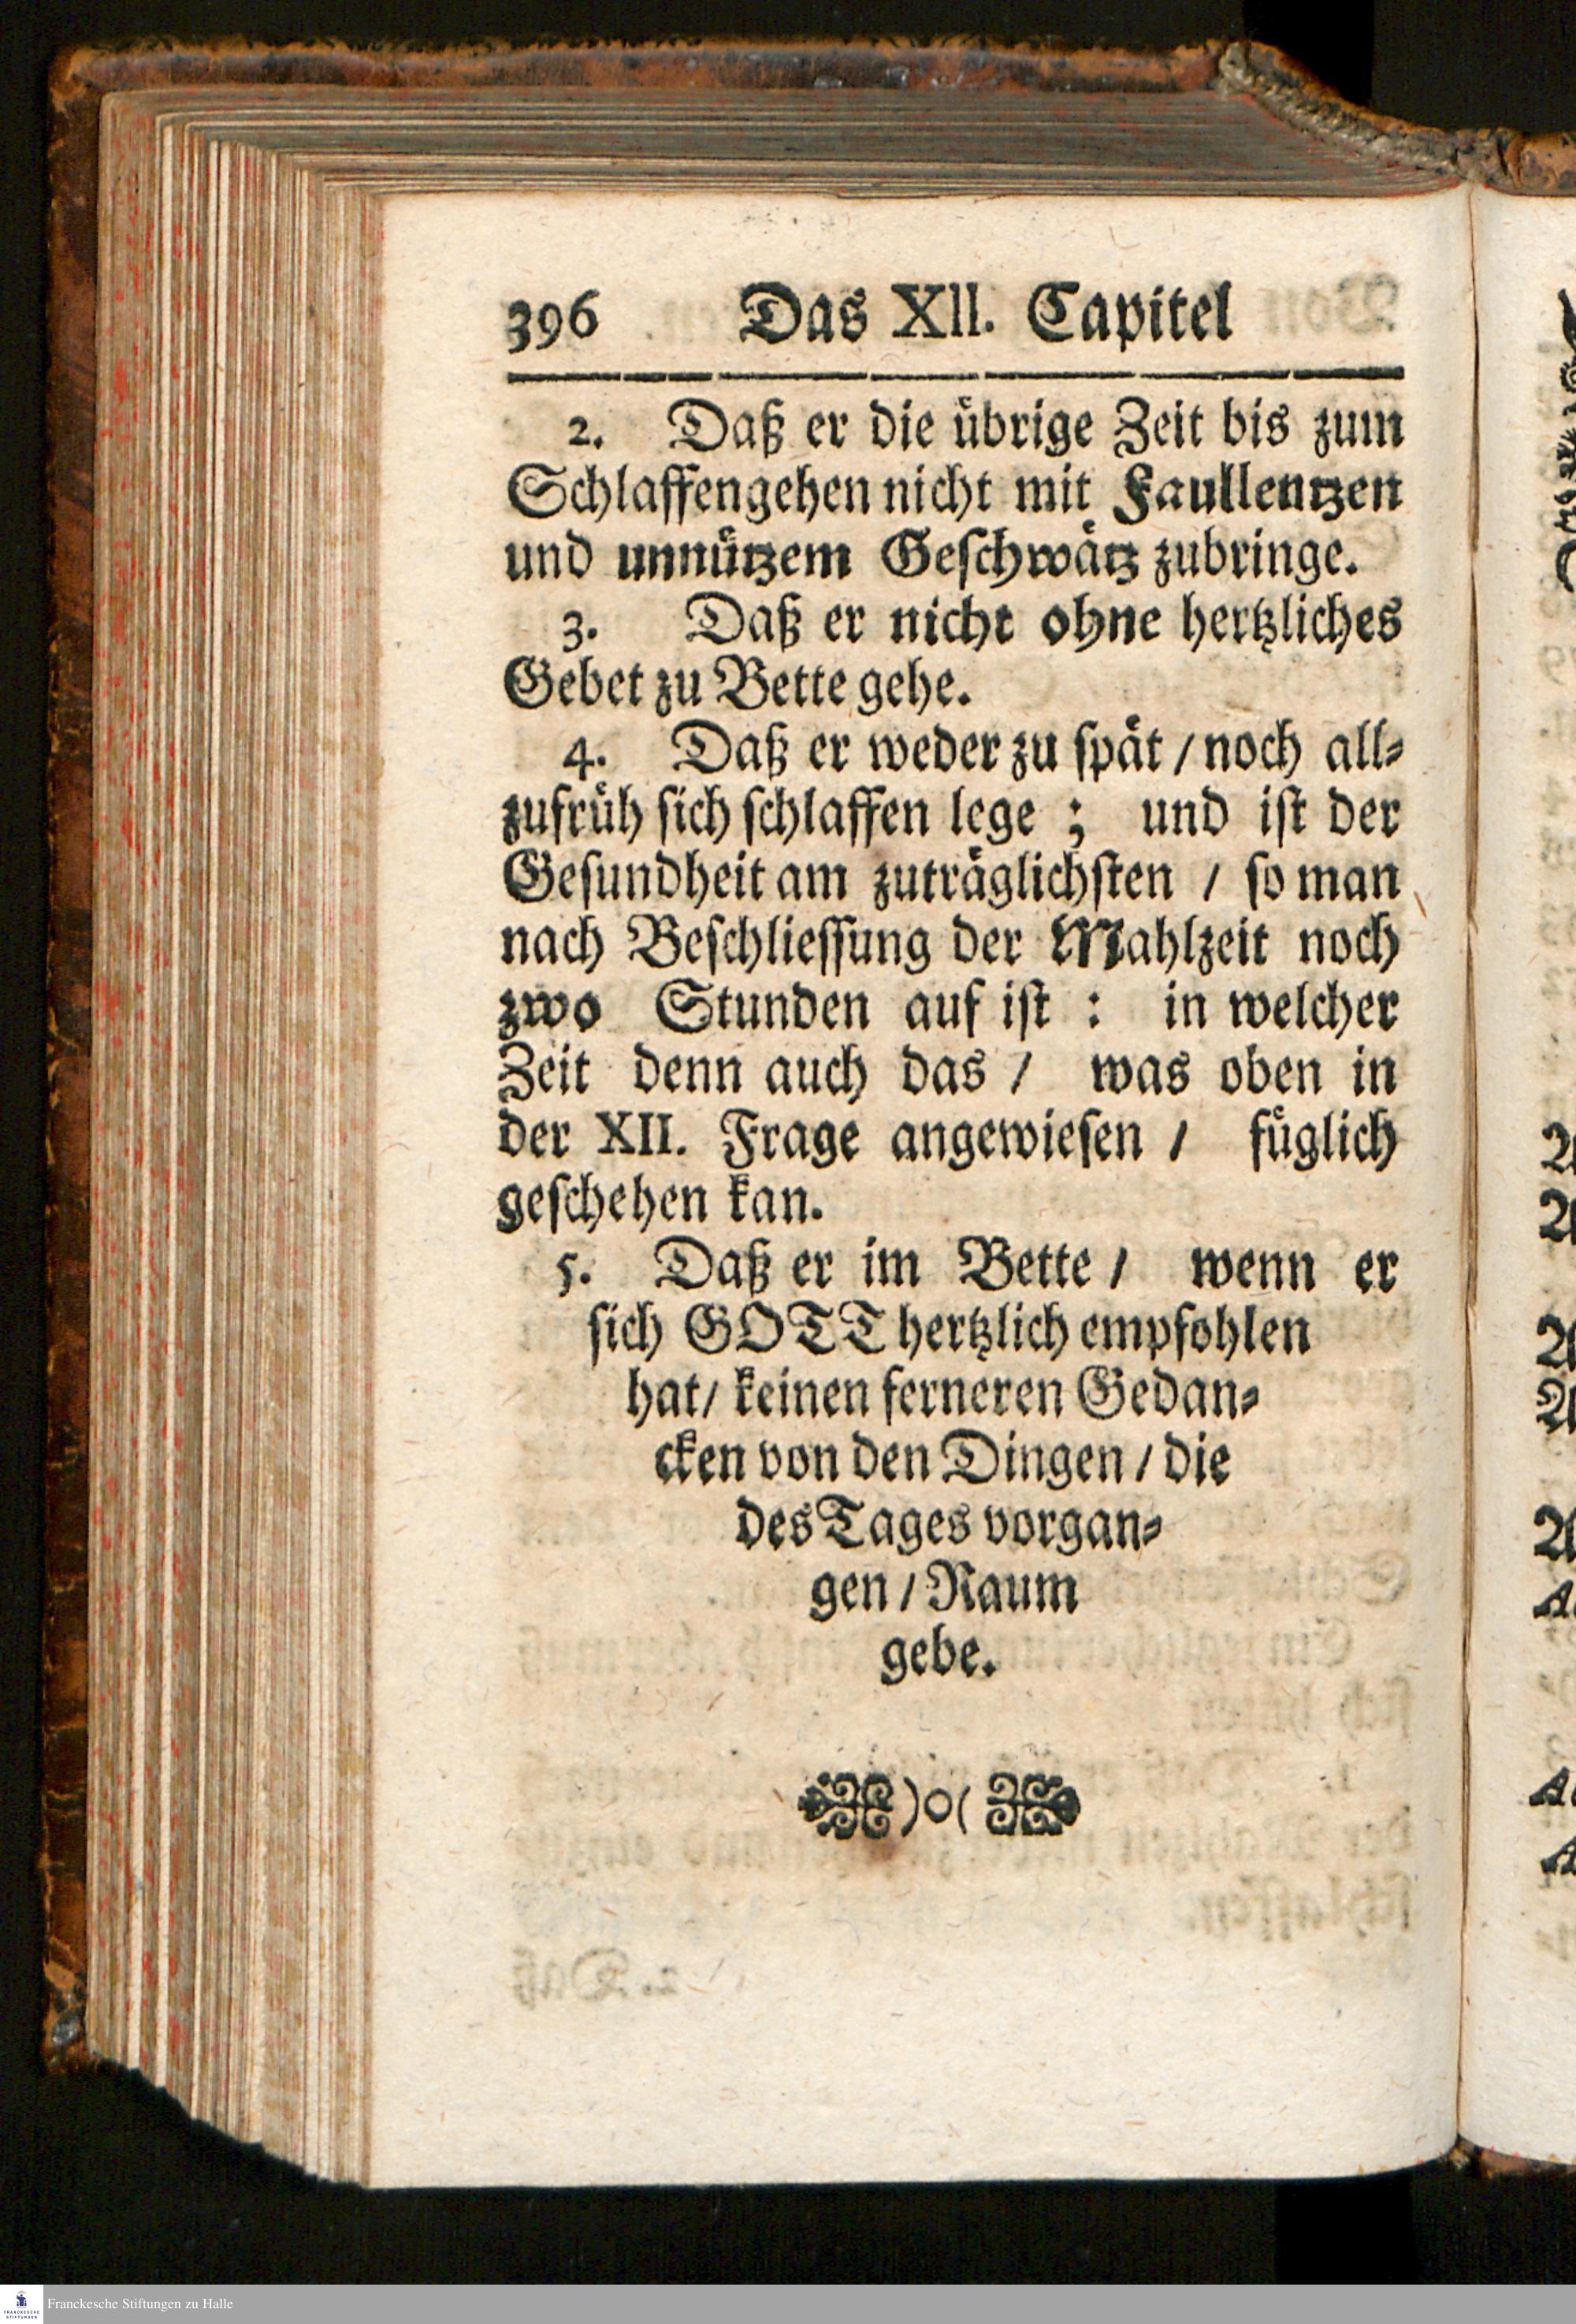 396 Das XII. Capitel
2. Daß er die übrige Zeit bis zum
Schlaffengehen nicht mit Faullentzen
und unnützem Geschwätz zubringe.
3. Daß er nicht ohne hertzliches
Gebet zu Bette gehe.
4. Daß er weder zu spät / noch all-
zufrüh sich schlaffen lege ; und ist der
Gesundheit am zuträglichsten / so man
nach Beschliessung der Mahlzeit noch
zwo Stunden auf ist : in welcher
Zeit denn auch das / was oben in
der XII. Frage angewiesen / füglich
geschehen kan.
5. Daß er im Bette / wenn er
sich GOTT hertzlich empfohlen
hat / keinen ferneren Gedan-
cken von den Dingen / die
des Tages vorgan-
gen / Raum
gebe.
)o(
Franckesche Stiftungen zu Halle